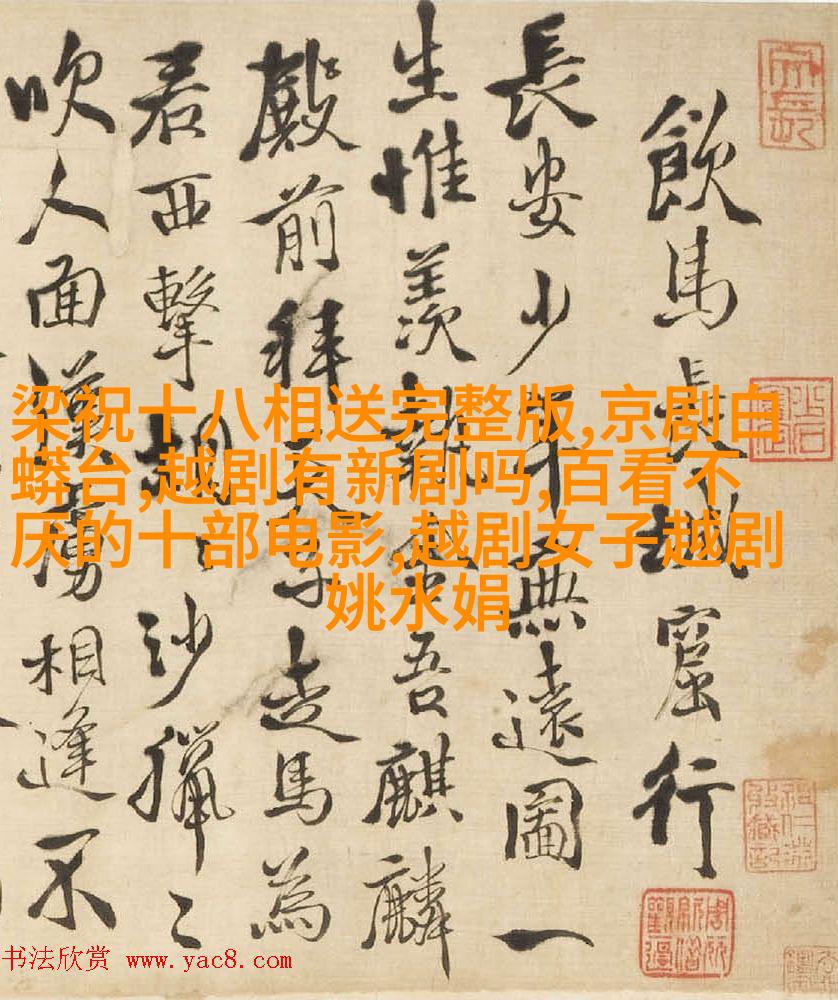 飲馬長城窟行
長安少年無遠圖一
生惟羨執金吾麒麟
殿前拜天子走馬為
君西擊胡〻沙獵〻
吹人面漢虜相逢不
梁祝十八相送完整版,京剧白
蟒台,越剧有新剧吗,百看不
厌的十部电影,越剧女子越剧
姚水娟
书法欣赏 www.yac8.com